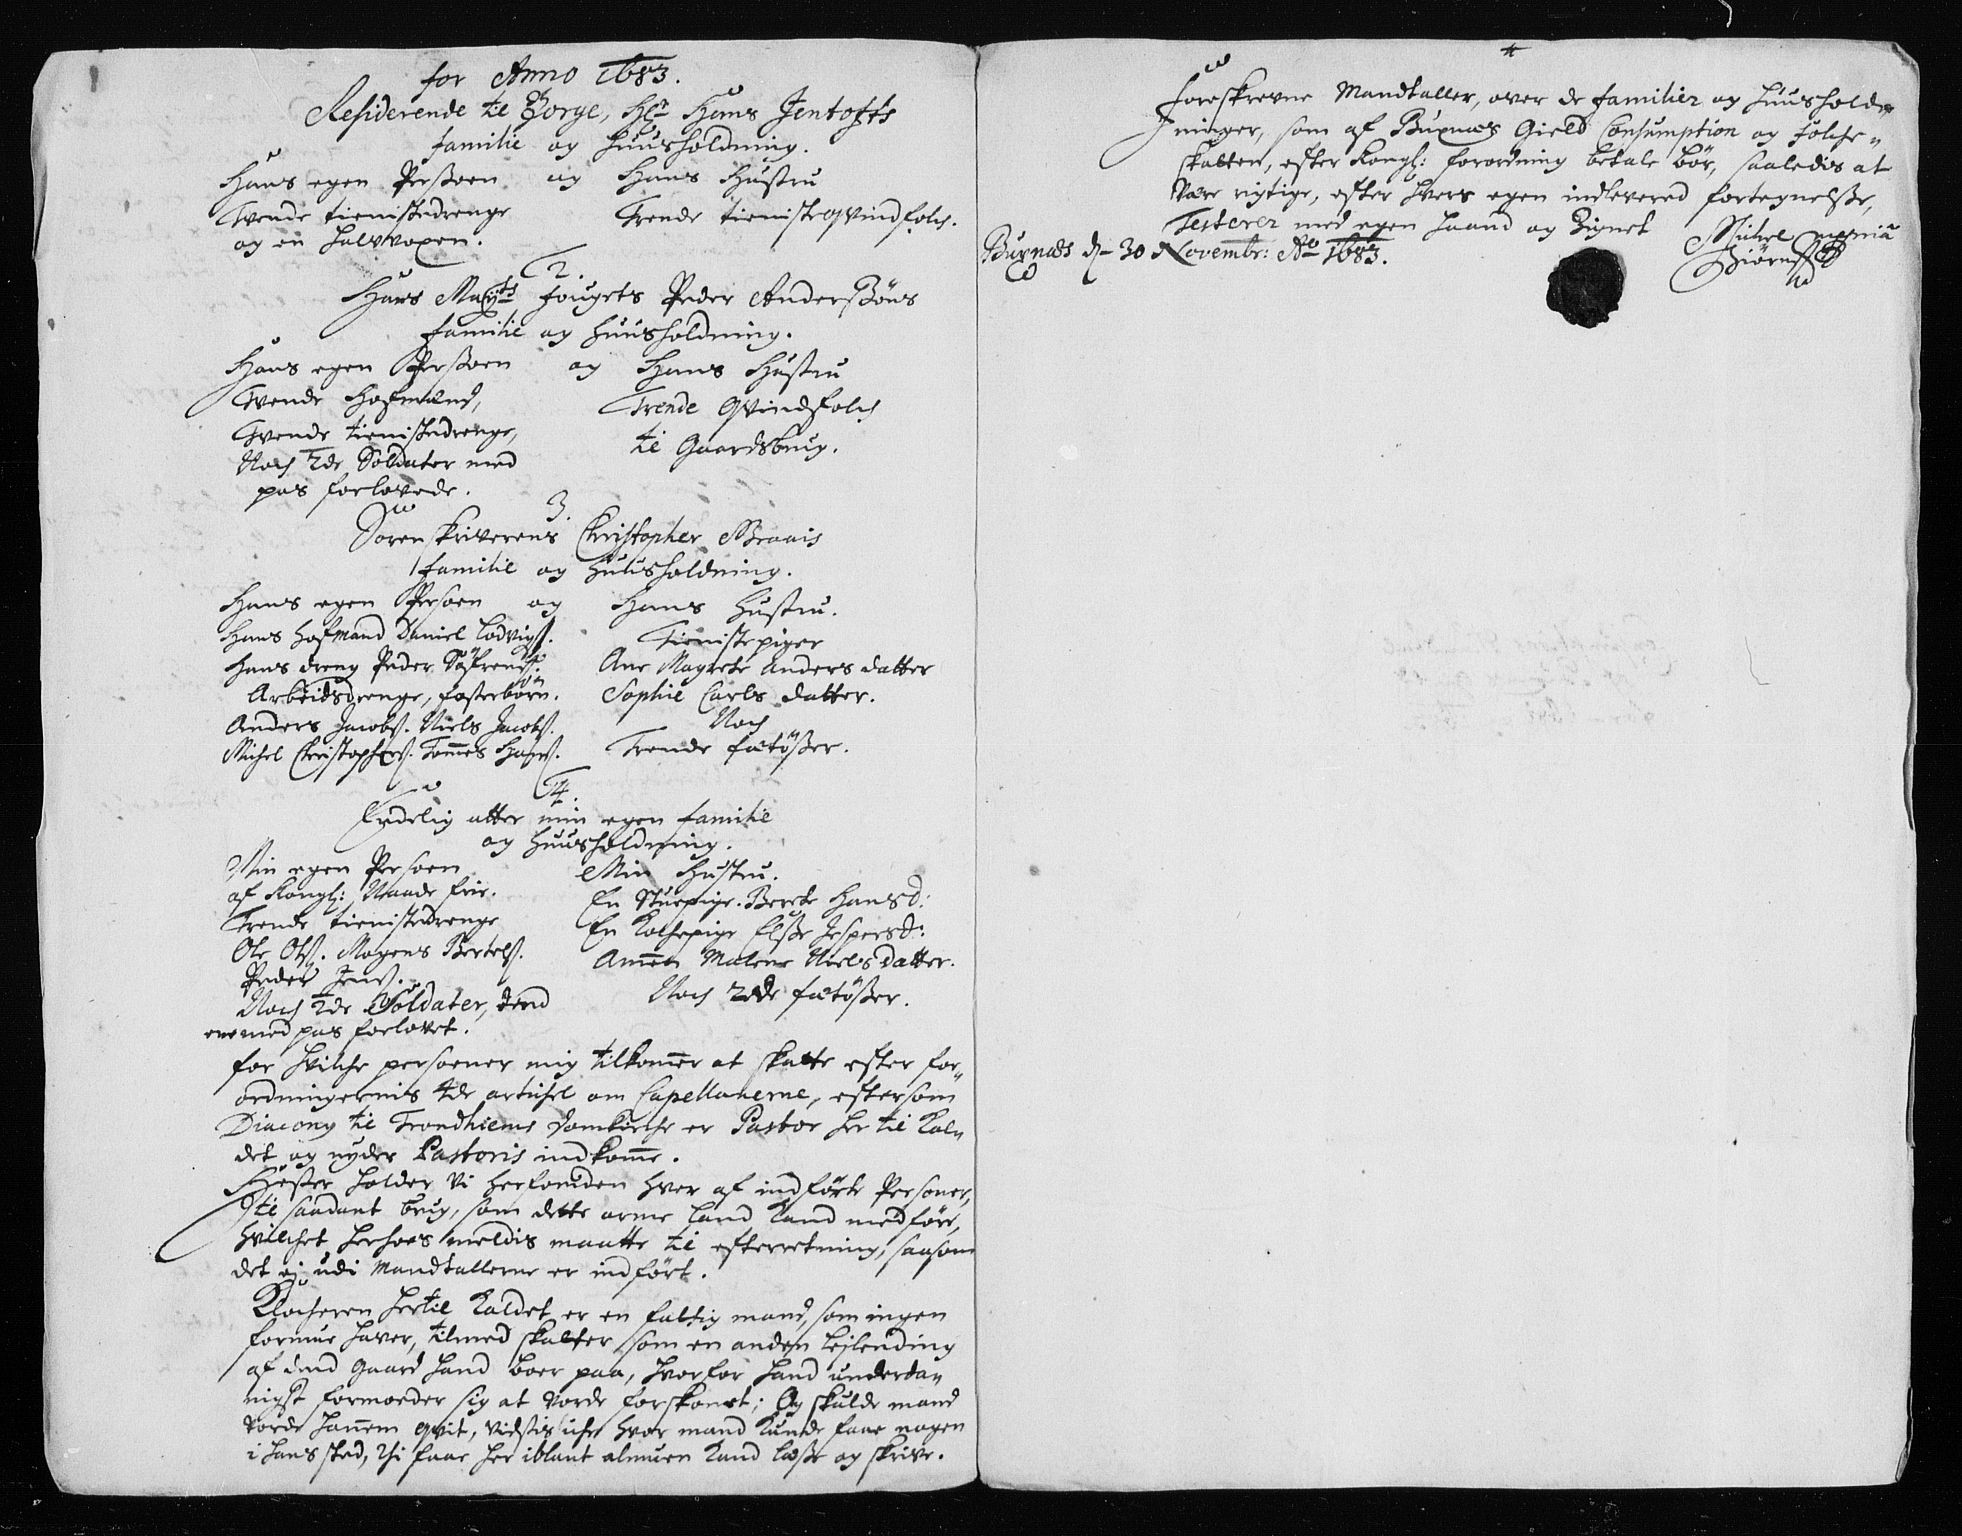 for Anno 1683.
Residerende til Borge, Hr Hans Jentofts
familie og Huusholdning.
Hans egen Perssoen og Hans Hustru
Tvende tienistedrenge Trende tieniste qvindfolch.
og en halvvoxen.
2.
Hans Maÿts fougets Peder Anderssøns
familie og Huusholdning.
Hans egen Perssoen og Hans Hustru
Tvende Hofmænd, Trende qvindfolch
Tvende tienistedrenge, til Gaardsbrug.
Noch 2de Soldater med
pas forlovede.
3.
Sorenskriverens Christopher Braais
familie og Huusholdning.
Hans egen Persoen og Hans Hustru.
Hans Hofmand Daniel Lodvigs. Tienistepiger
Hans dreng Peder Ane Magrete Anders datter
Arbeidsdrenge, fosterbørn. Sophie Carls datter.
Anders Jacobs. Niels Jacobs. Noch
Michel Christophers. Tommes Hans. Trende fætøsser.
4.
Endelig atter min egen familie
og Huusholdning.
Min egen Persoen Min Hustru.
af Kongl: Naade frie. En Stuepige. Berete Hansd:
Trende tienistedrenge En Kochepige Elsse Jespersd:
Ole Ols. Mogens Bertels. Ammen Malene Niels datter.
Peder Jens. Noch 2de fætøsser.
Noch 2de Soldater, dend
ene med pas forlovet.
for hvilche persoener mig tilkommer at skatte efter for„
ordningernis 4de artichel om Capellanerne, eftersom
Diacony til Trondhiems Domkirche er Pastor her til Kal„
det og nyder Pastoris indkomme.
Hester holder vi herforuden hver af indførte Personer,
til saadant brug, som dette arme land kand medføre,
hvilchet herhoes meldis maatte til efterretning, saasom
det ej udi Mandtallerne er indført.
Klocheren hertil Kaldet er en fattig mand, som ingen
formue haver, tilmed skatter som en anden lejlending
af dend Gaard hand boer paa, hvorfor hand underda„
nigst formoeder sig at vorde forskonet; Og skulde mand
vorde hannem qvit, vidstis iche hvor mand kunde faae nogen
i hans sted, thi faae her iblant almuen kand læsse og skrive.
Foreskrevne Mandtaller, over de familier og Huusholde„
ninger, som af Buxnæs Gield Consumption og folche„
skatten, efter Kongl: forordning betale bør, saaledis at
være rigtige, efter hvers egen indlevered fortegnelsse,
Testerer med egen haand og Zignet
Buxnæs d. 30 Novembr: Ao 1683. Michel